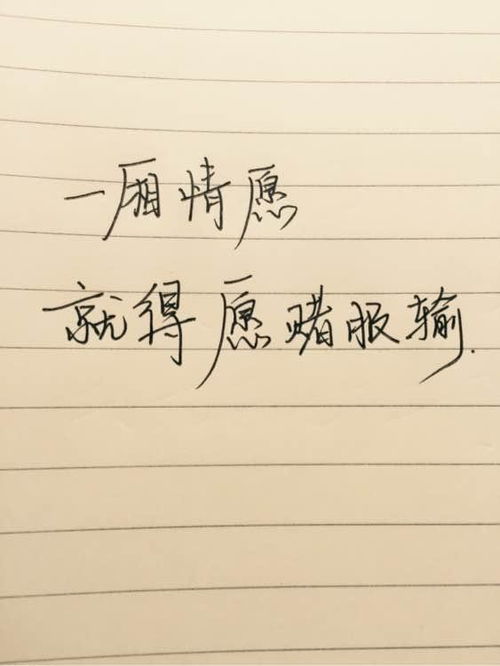 一厢情愿
就得愿赌服输.